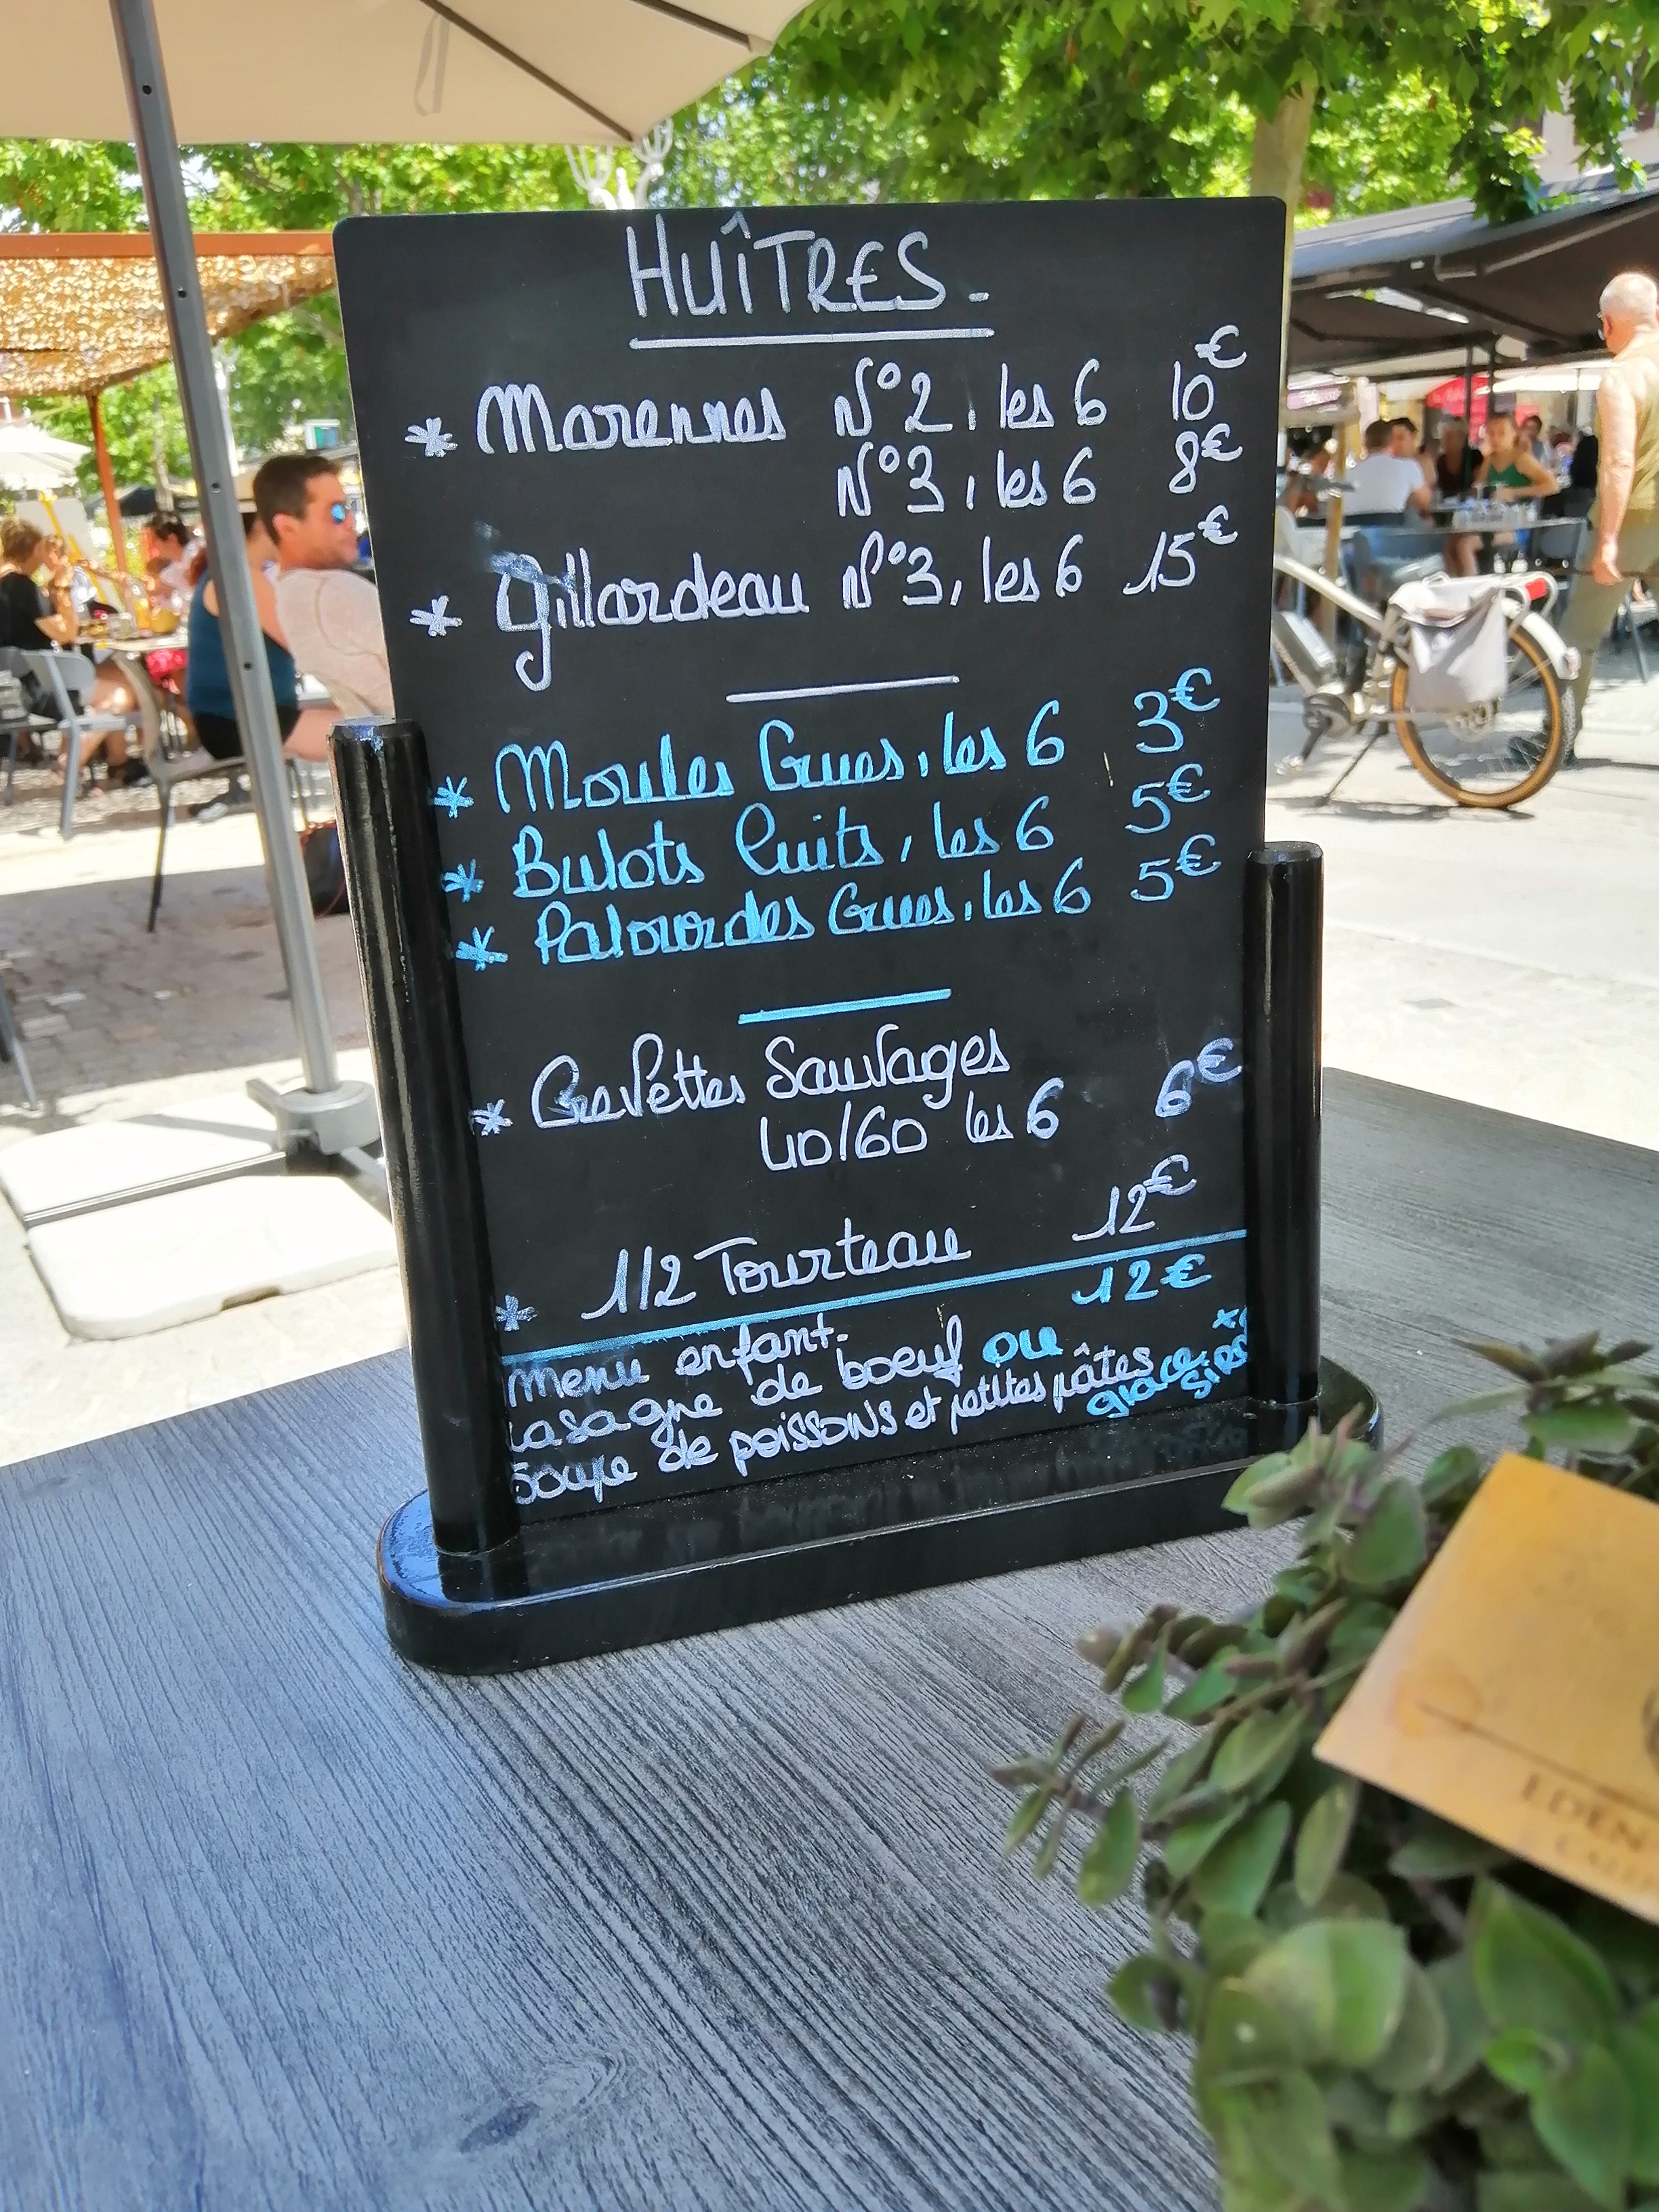 HUÎTRES-
* Marennes N°2, les 6 10€
N°3, les 6 8€
* Gillardeau N°3, les 6 15€
* Moules Crues, les 6 3€
* Bulots Cuits, les 6 5€
* Palourdes Crues, les 6 5€
* Crevettes Sauvages
40/60 les 6 6€
* 1/2 Tourteau 12€
menu enfant- 12€
Lasagne de boeuf ou
Soupe de poissons et petites pâtes
glace
EDEN